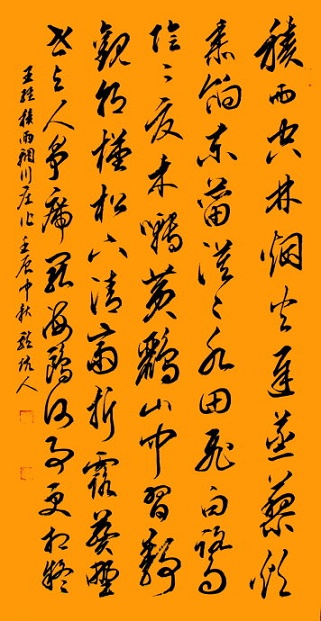 積雨空林烟火遲蒸藜炊
黍餉東菑漠々水田飛白鷺
陰々夏木囀黃鸝山中習靜
觀朝槿松下清齋折露葵野
老與人爭席罷海鷗何事更相疑
王維積雨輞川莊作 壬辰中秋 人